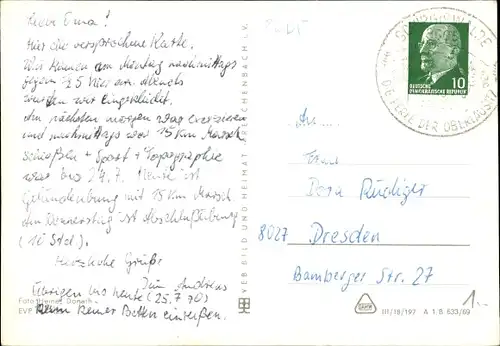 Liebe Oma!
Für die versprochene Karte.
Wir kamen am Montag nachmittags
gegen 1/2 5 hier an. Abends
wurden wir eingekleidet.
Am nächsten morgen war exerzieren
und nachmittags war 15 km Marsch
schießen + Sport + Topographie
war bis 24.7. Heute ist
Geländeübung mit 15 km Marsch
Am Donnerstag ist Abschlußübung
(10 Std.)
Herzliche Grüße
Andreas
Übrigens bis heute (25.7.70)
keiner Betten einreißen.
Foto:
EVP
VEB BILD UND HEIMAT REICHENBACH I. V.
DEUTSCHE
DEMOKRATISCHE REPUBLIK
10
DIE PERLE DER OBERLAUSITZ
An
Frau
Dora Rüdiger
8027 Dresden
Bamberger Str. 27
01/18/197 A 1/B 633/69
1.-